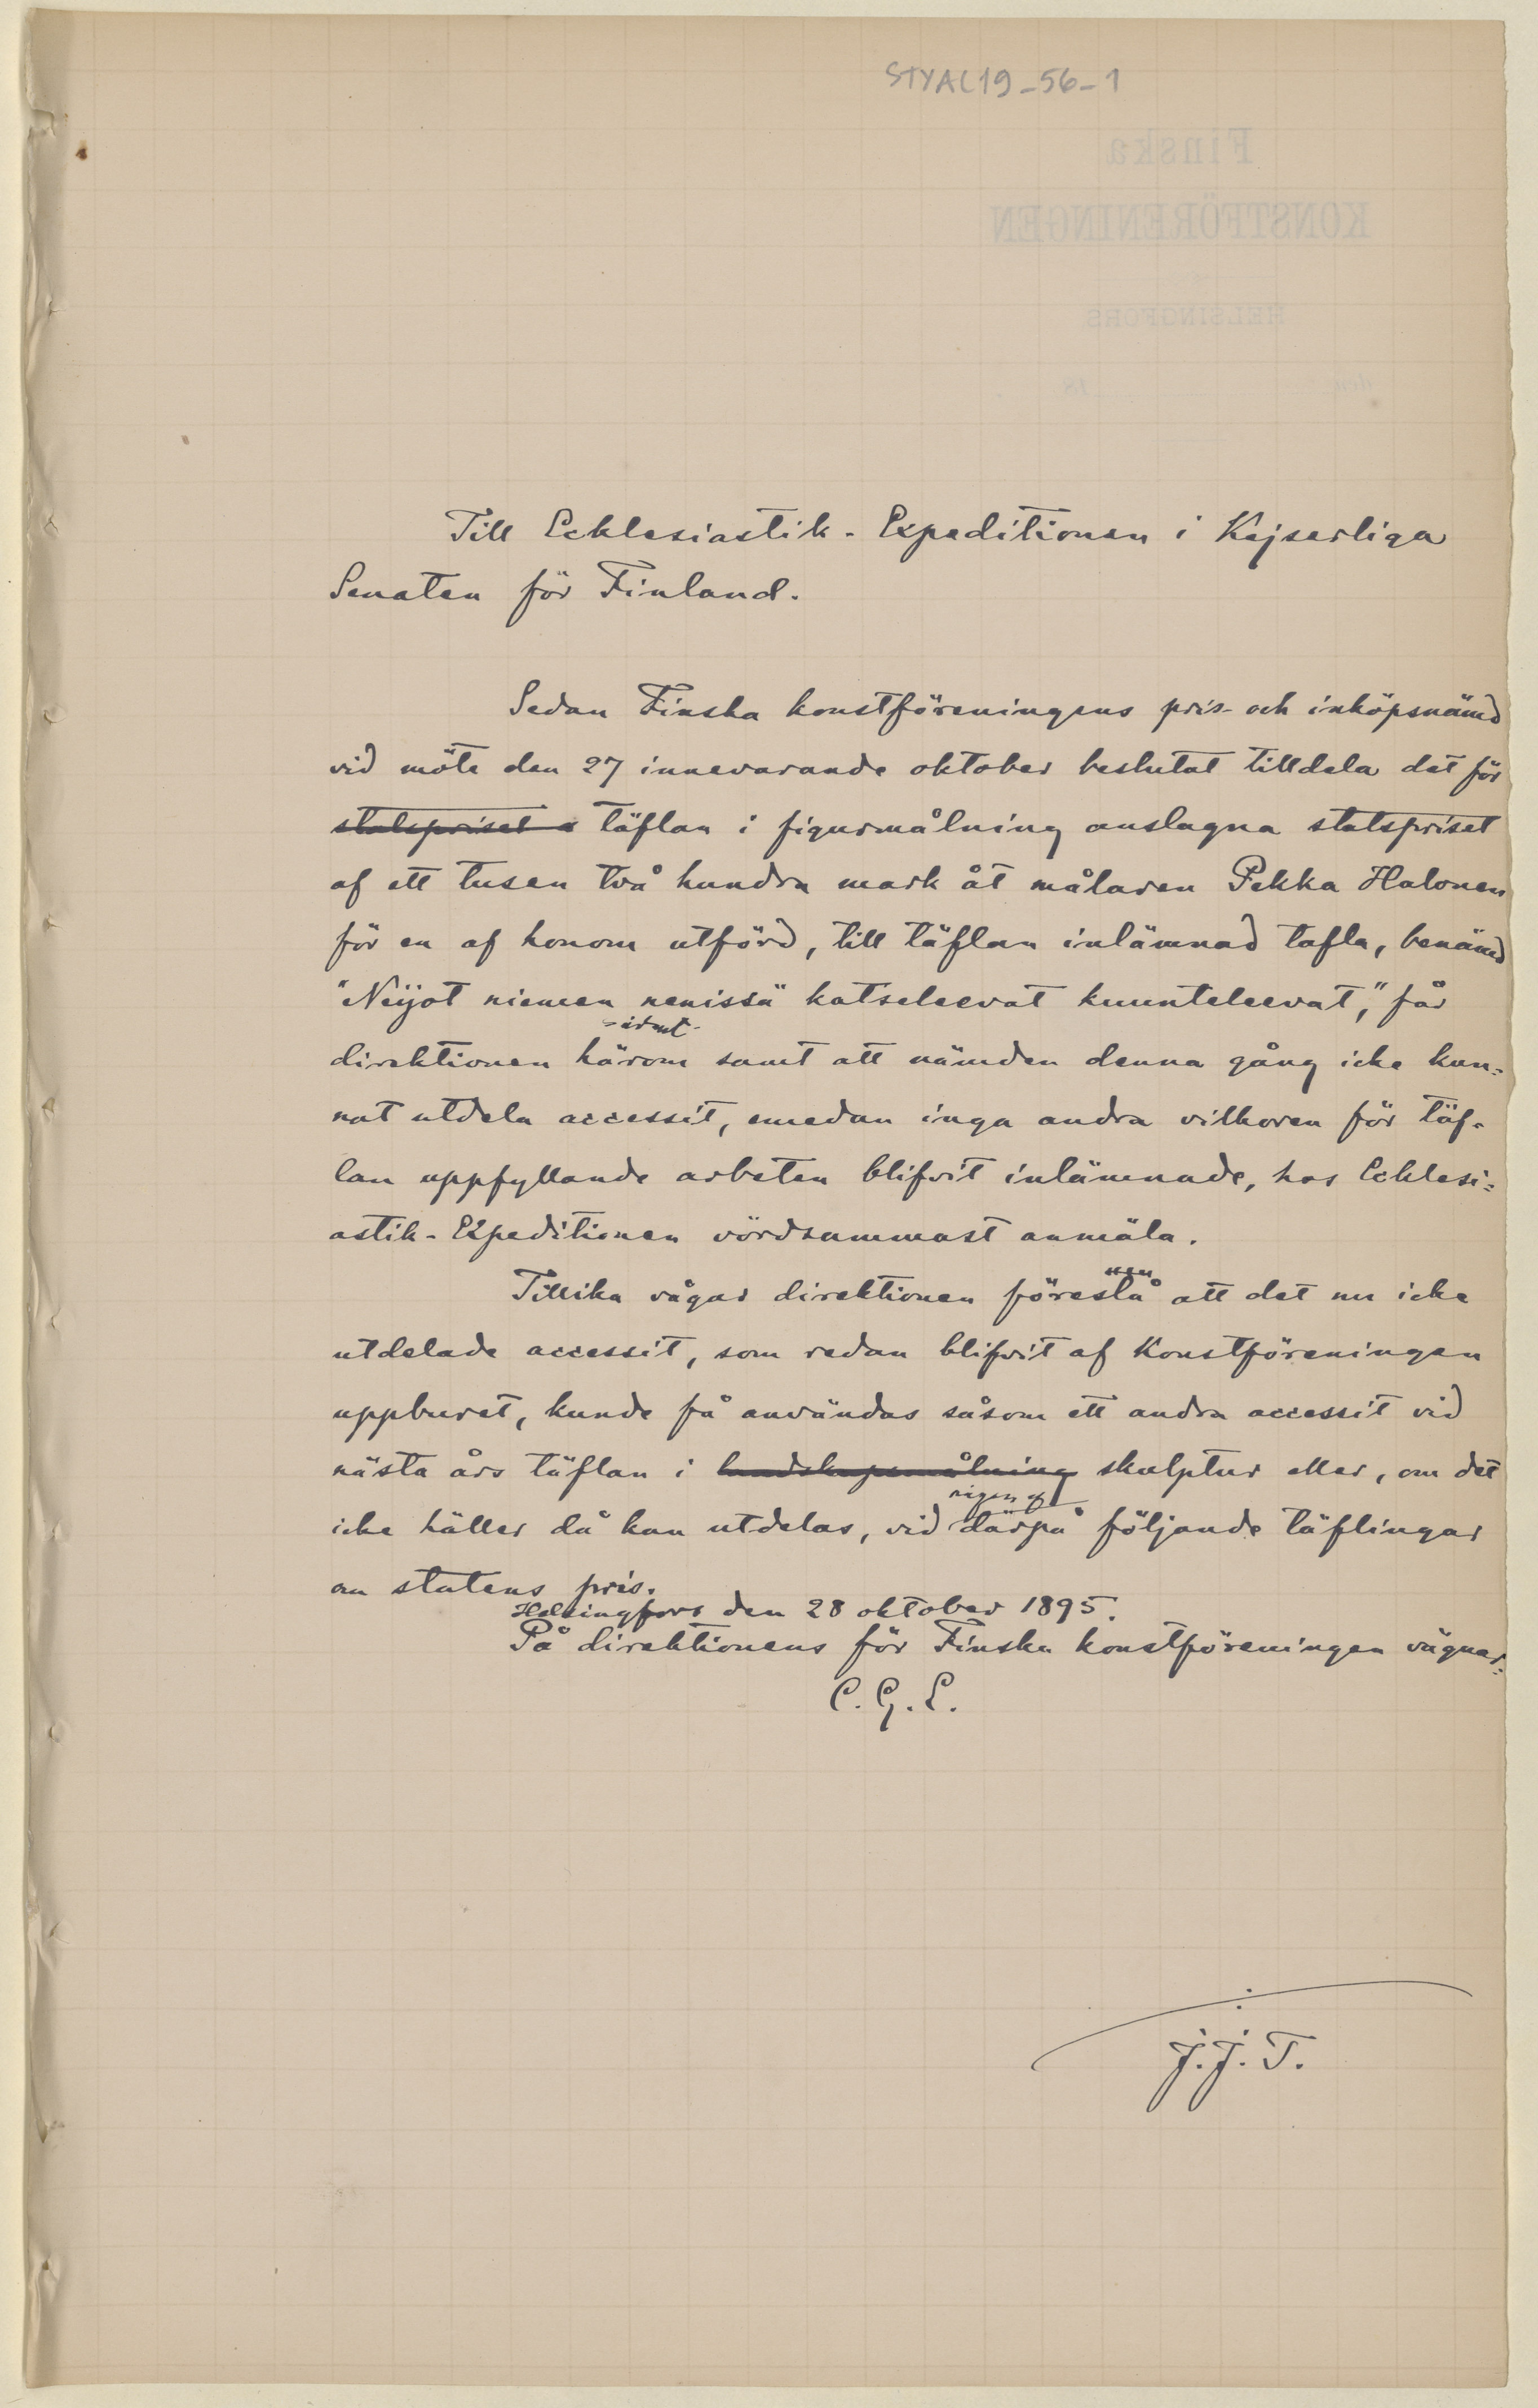 STYAL19_56_1
Finska
KONSTFÖRENINGEN
HELSINGFORS
den 18
Till Ecklesiastik-Expeditionen i Kejserliga
Senaten för Finland.
Sedan Finska konstföreningens pris- och inköpsnämd
vid möte den 27 innevarande oktober beslutat tilldela det för
statspriset a täflan i figurmålning anslagna statspriset
af ett tusen två hundra mark åt målaren Pekka Halonen
för en af honom utförd, till täflan inlämnad tafla, benämd
"Neijot niemen nenissä katseleevat kuunteleevat," får
direktionen härom samt att nämden denna gång icke kun-
nat utdela accessit, emedan inga andra vilkoren för täf-
lan uppfyllande arbeten blifvit inlämnade, hos Ecklesi-
astik-Expeditionen vördsammast anmäla.
Tillika vågar direktionen föreslå att det nu icke
utdelade accessit, som redan blifvit af Konstföreningen
uppburet, kunde få användas såsom ett andra accessit vid
nästa års täflan i landskapsmålning skulptur eller, om det
någon af
icke häller då kan utdelas, vid därpå följande täflingar
om statens pris.
Helsingfors den 28 oktober 1895.
På direktionens för Finska konstföreningen vägnar:
C. G. E.
J. J. T.